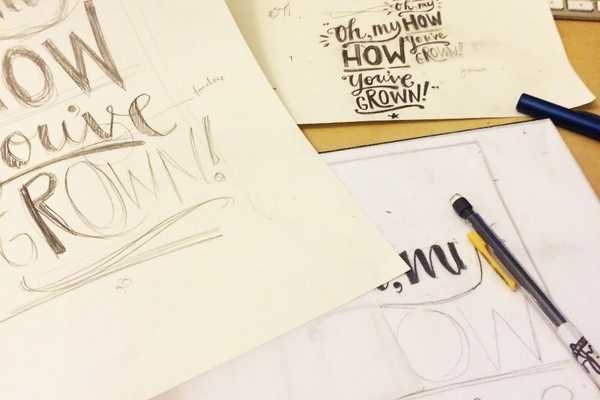 HOW
you've
GROWN!
oh, my
Oh, my HOW
HOW you've
GROWN!
You've
GROWN!
, my
OW